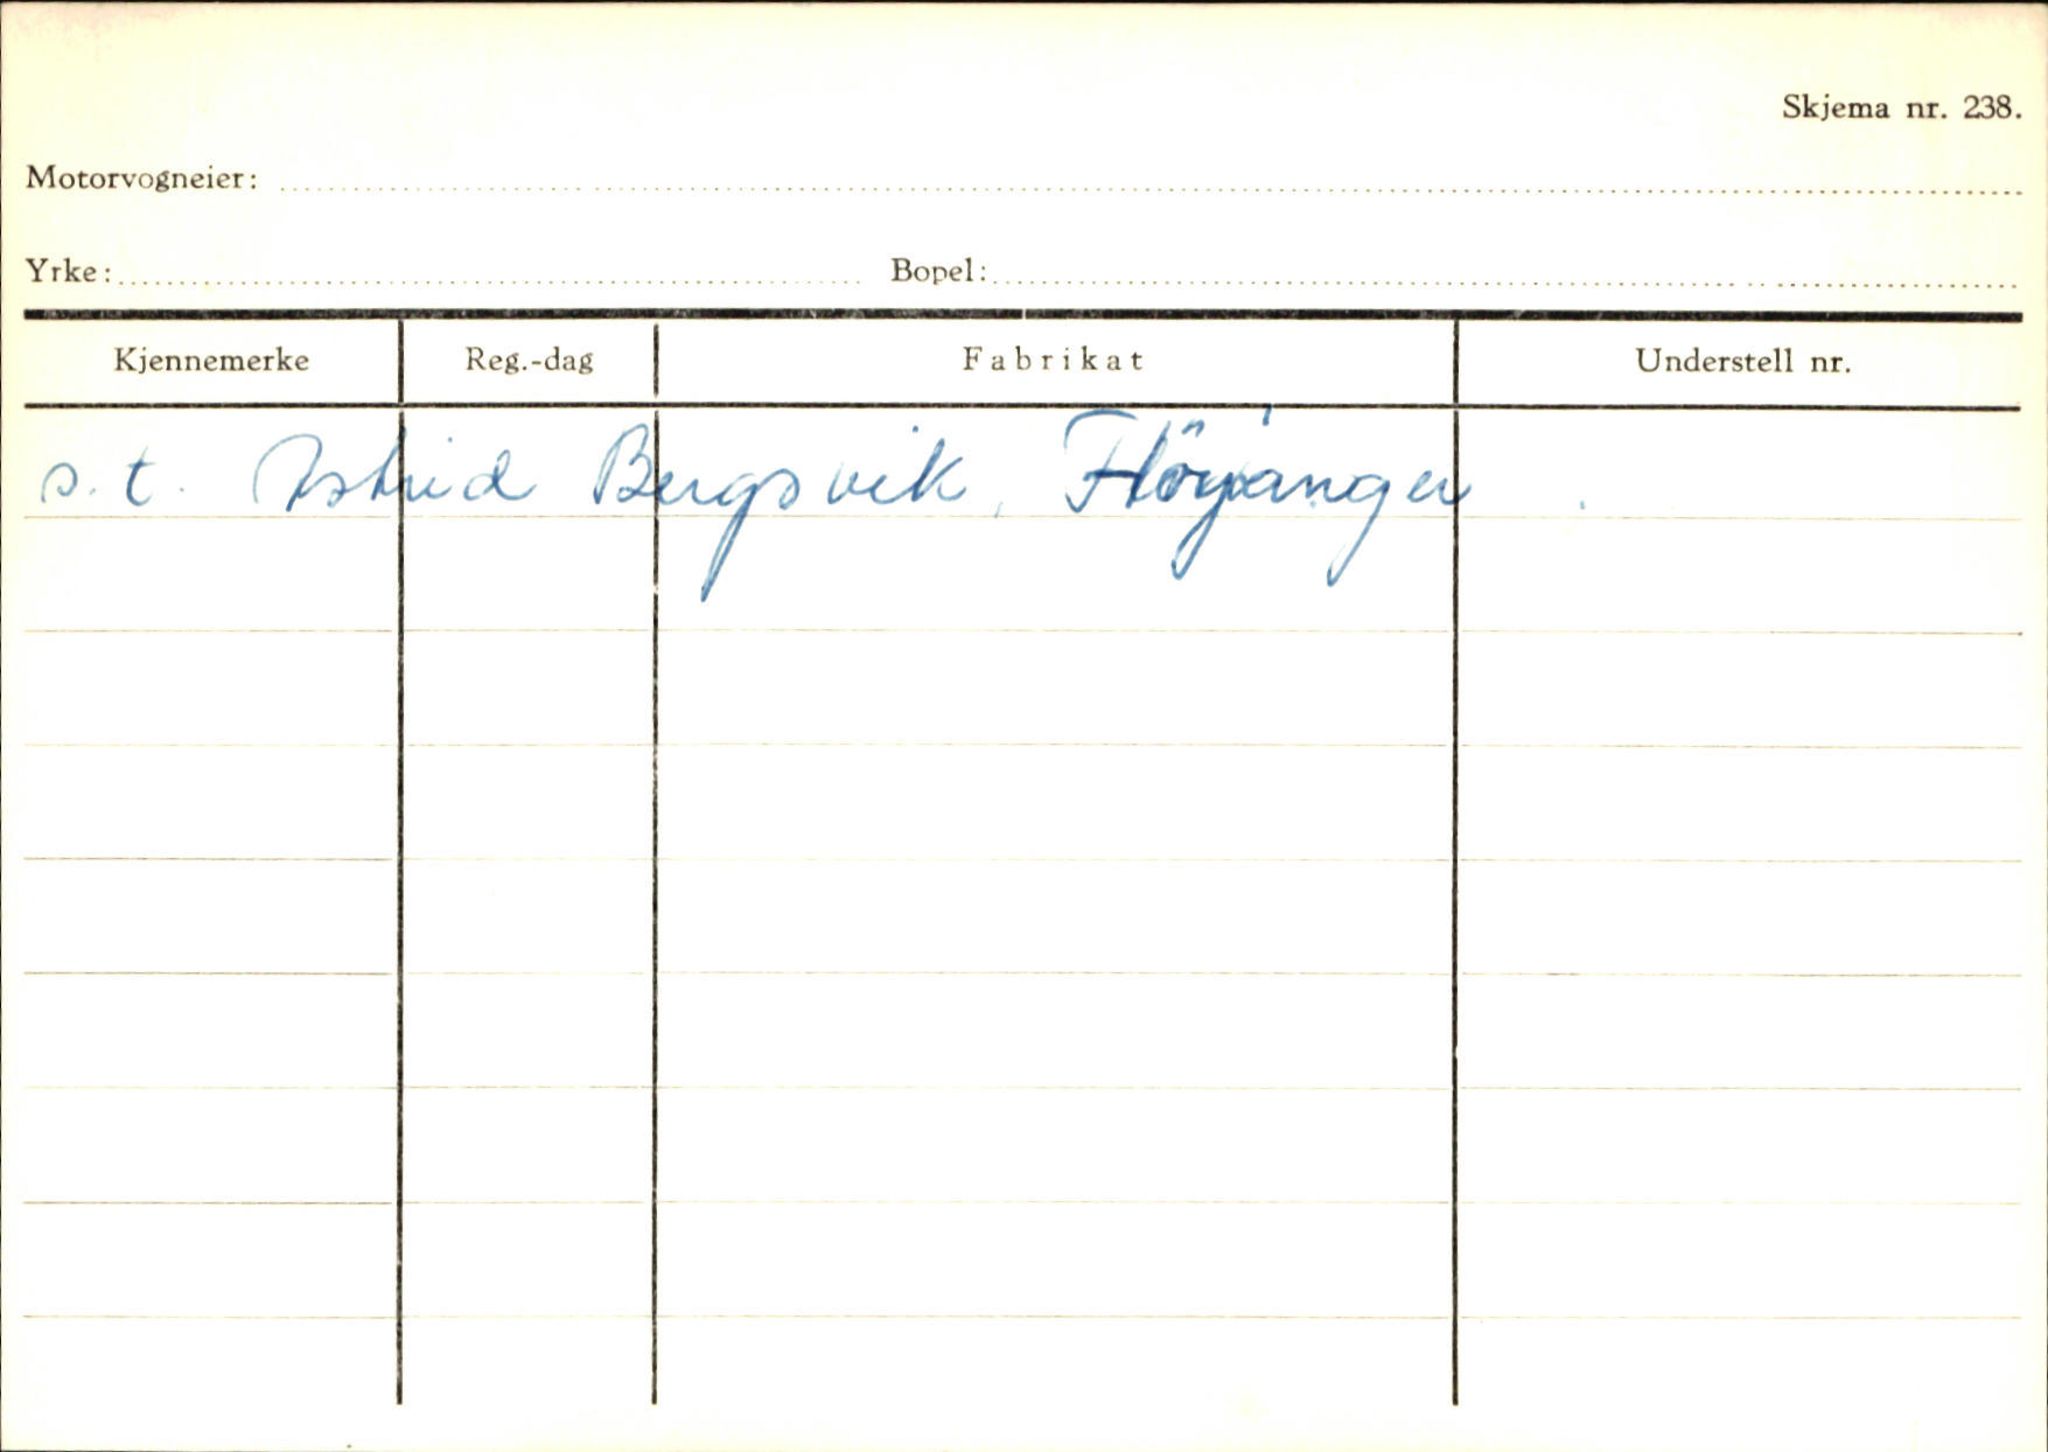 Skjema nr. 238.
Motorvogneier:
Yrke: Bopel:
Kjennemerke Reg.-dag Fabrikat Understell nr.
s.t. Astrid Bergsvik, Höyanger